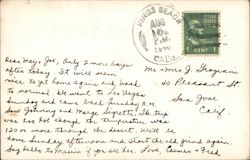 KINGS BEACH
AUG
P.M.
1940
CALIF.
1 CENT 1
Dear May, Joe, Only 2 more days
after today. It will seem
nice to get home again and back
to normal. We went to Las Vegas
Sunday and came back Tuesday A.M.
Saw Johnny and Marge Segretti. The trip
was too hot though the temperature was
120 or more through the desert. Will be
home Sunday afternoon and start the old grind again.
Say hello to Mamie if you see her. Love, Elmer & Fred
Mr & Mrs J. Graziani
40 Pleasant St
San Jose
Calif